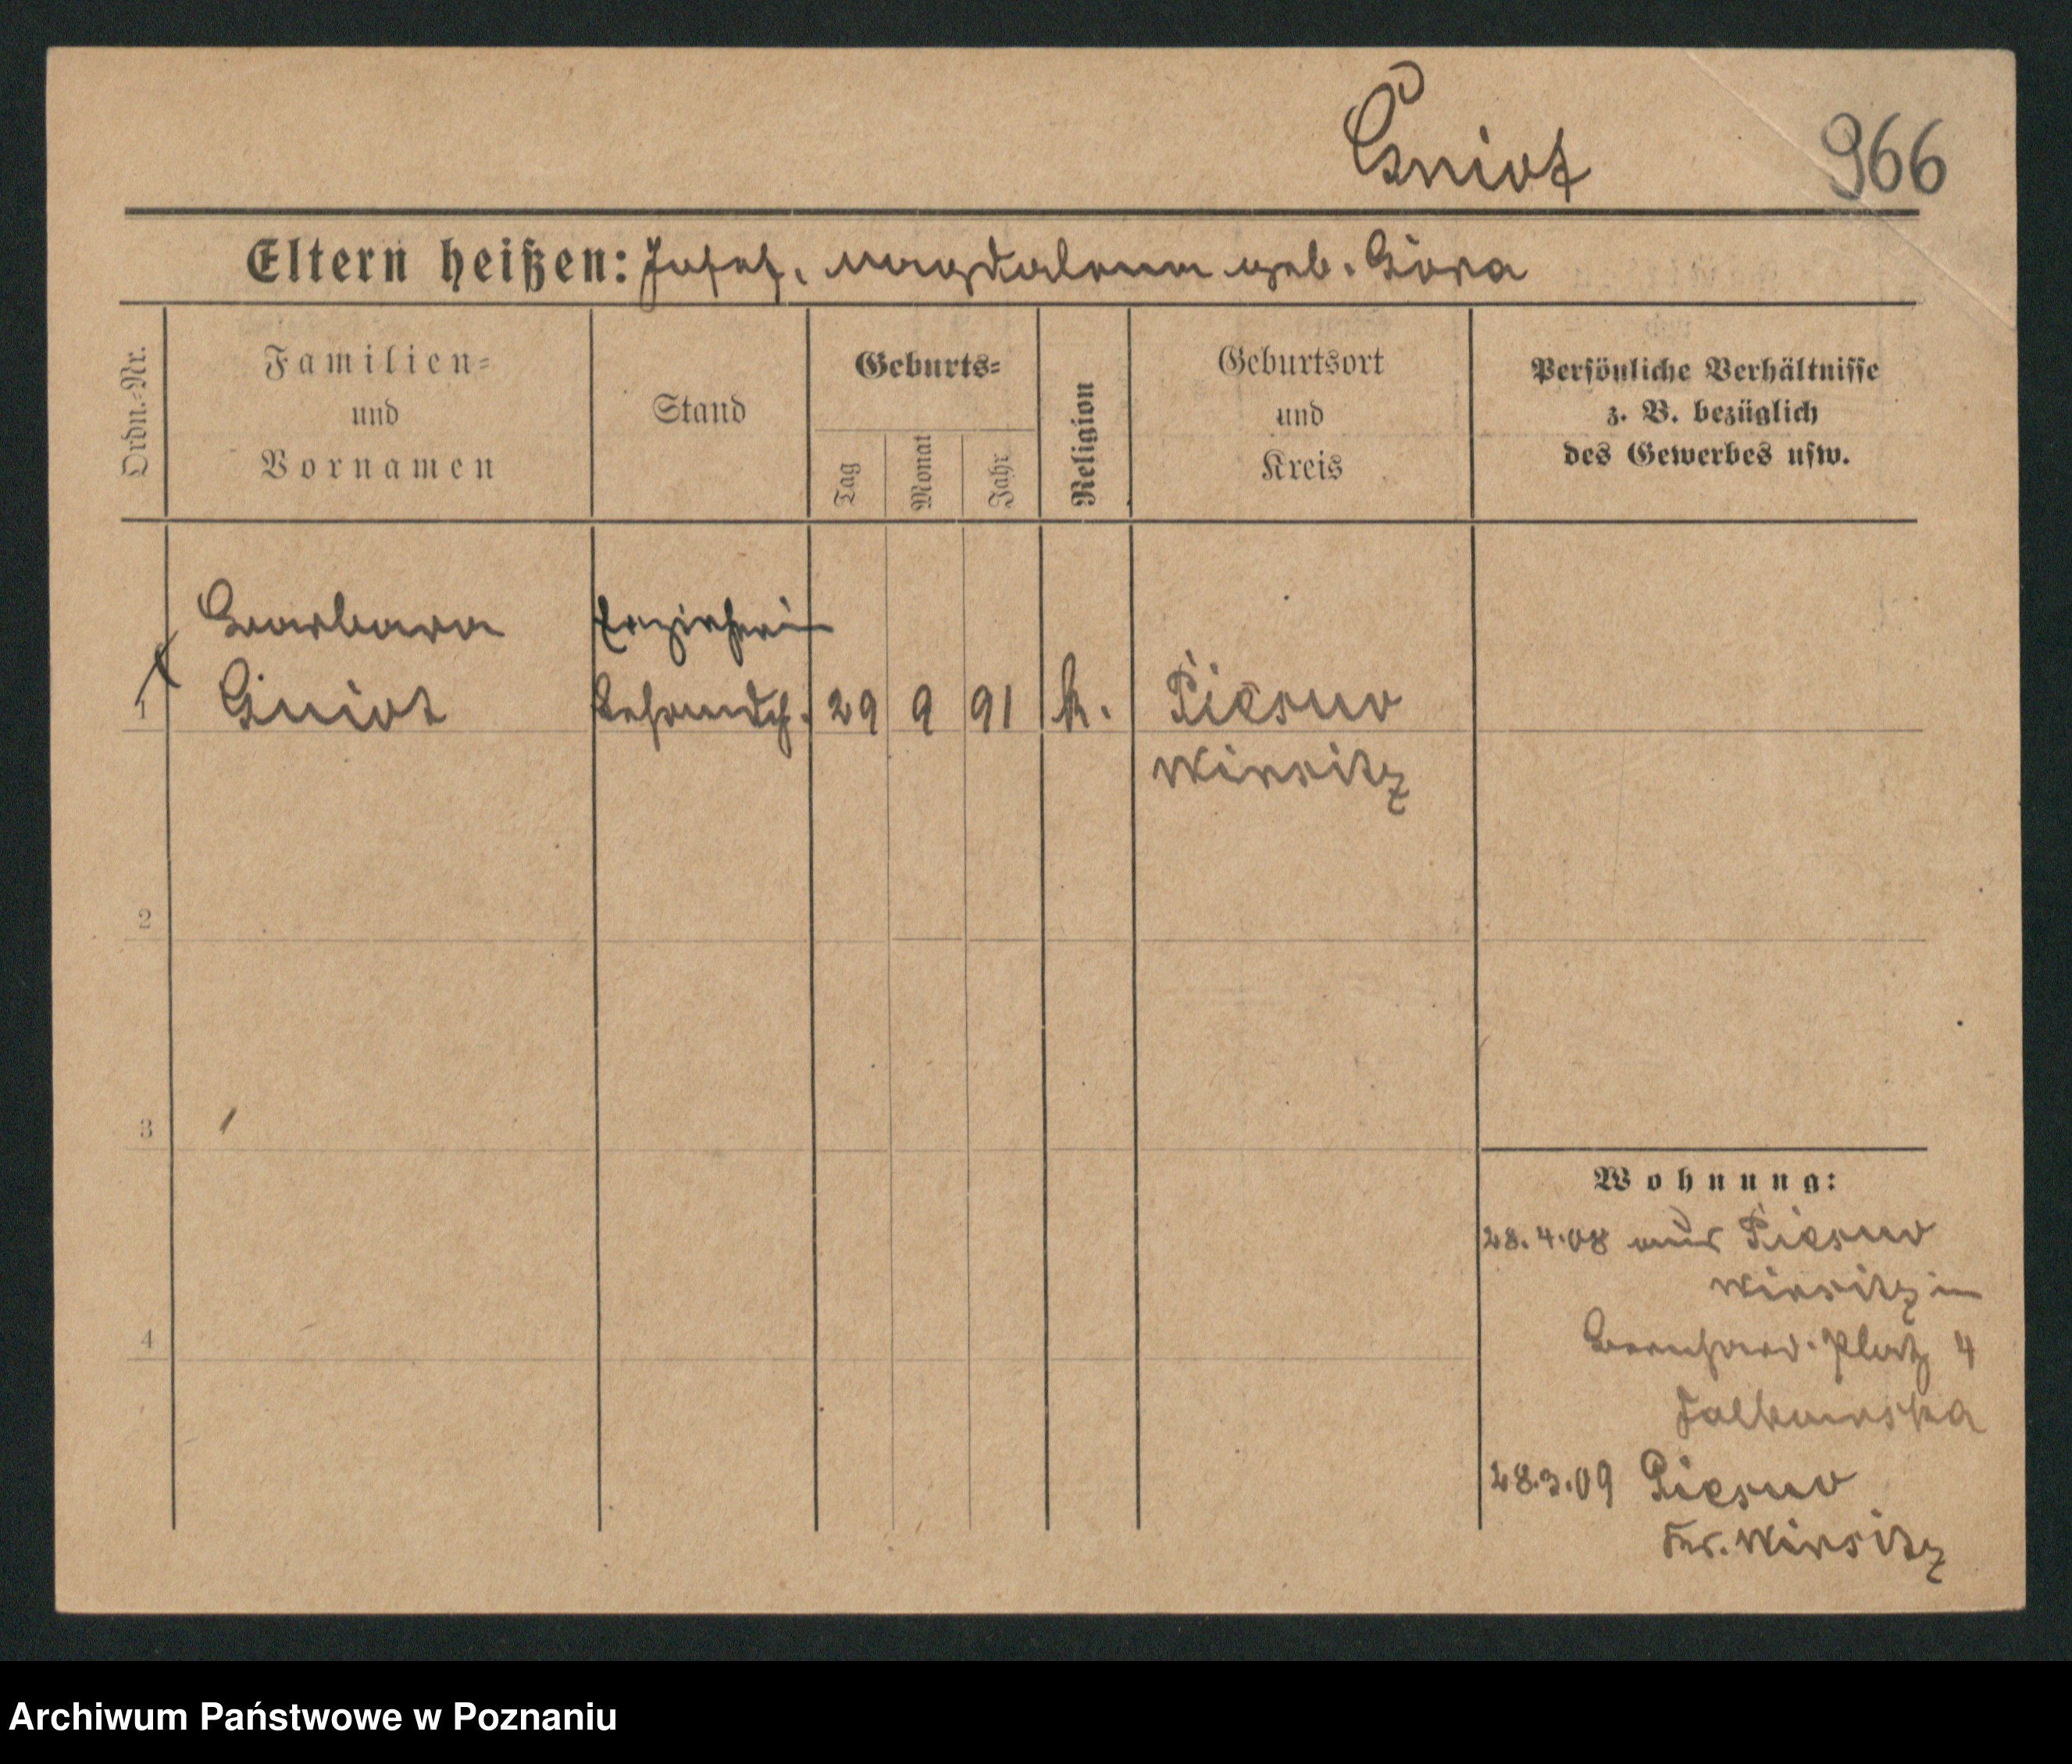 Gniot 966
Eltern heißen: Josef, Magdalena geb. Góra
Ordn.-Nr.
Familien-
und
Vornamen
Stand
Geburts-
Tag
Monat
Jahr
Religion
Geburtsort
und
Kreis
Persönliche Verhältnisse
z. B. bezüglich
des Gewerbes usw.
Barbara Erzieherin
1 Gniot 29 9 91 k. Piesno
Wirsitz
2
3
4
Wohnung:
28.4.08 aus Piesno
Wirsitz in
Bernhard. Platz 4
28.3.09 Piesno
Krs. Wirsitz
Archiwum Państwowe w Poznaniu